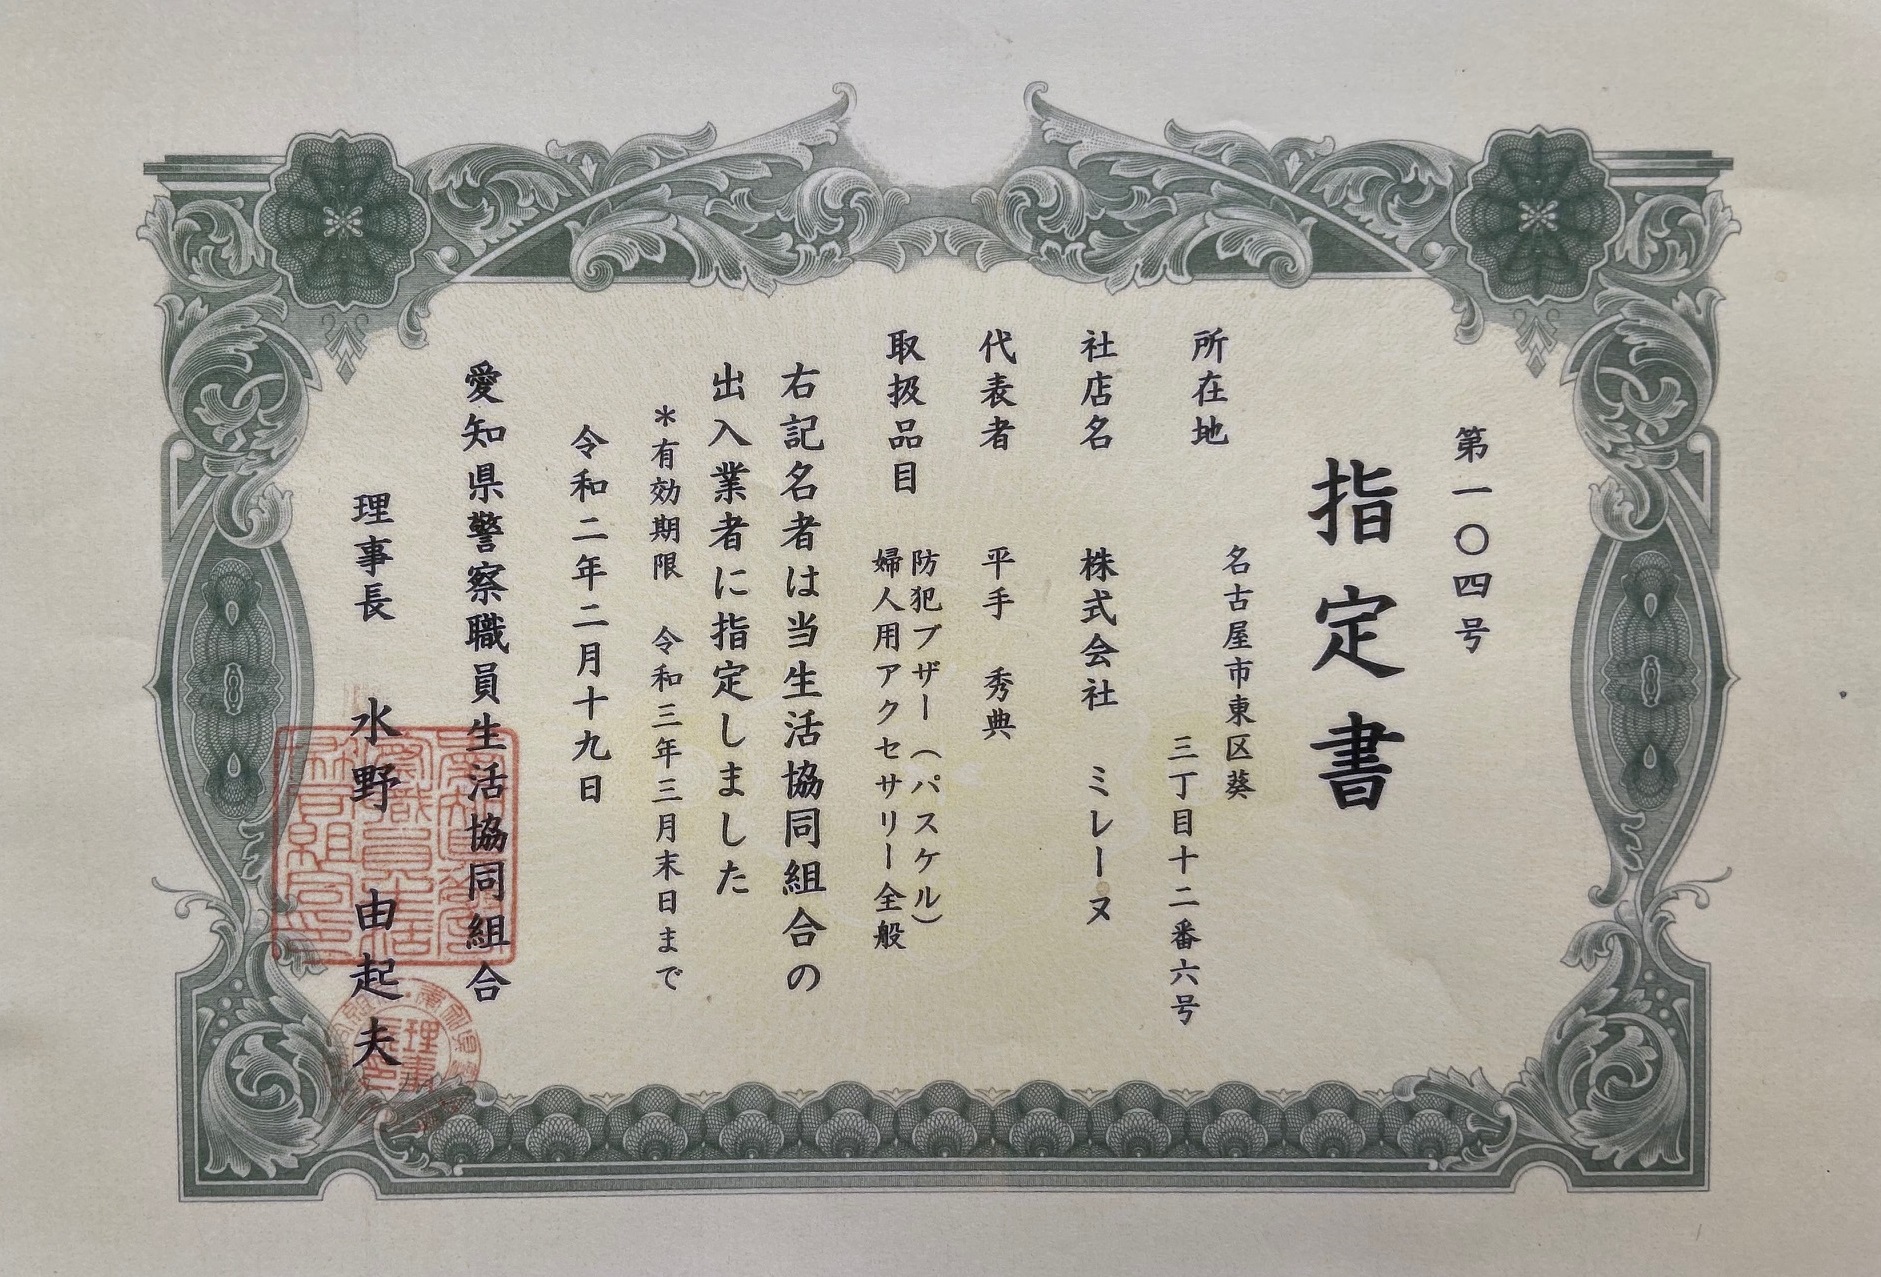 第一〇四号
指定書
所在地 名古屋市東区葵
三丁目十二番六号
社店名 株式会社 ミレーヌ
代表者 平手 秀典
取扱品目 防犯ブザー（パスケル）
婦人用アクセサリー全般
右記名者は当生活協同組合の
出入業者に指定しました
＊有効期限 令和三年三月末日まで
令和二年二月十九日
愛知県警察職員生活協同組合
理事長 水野 由起夫